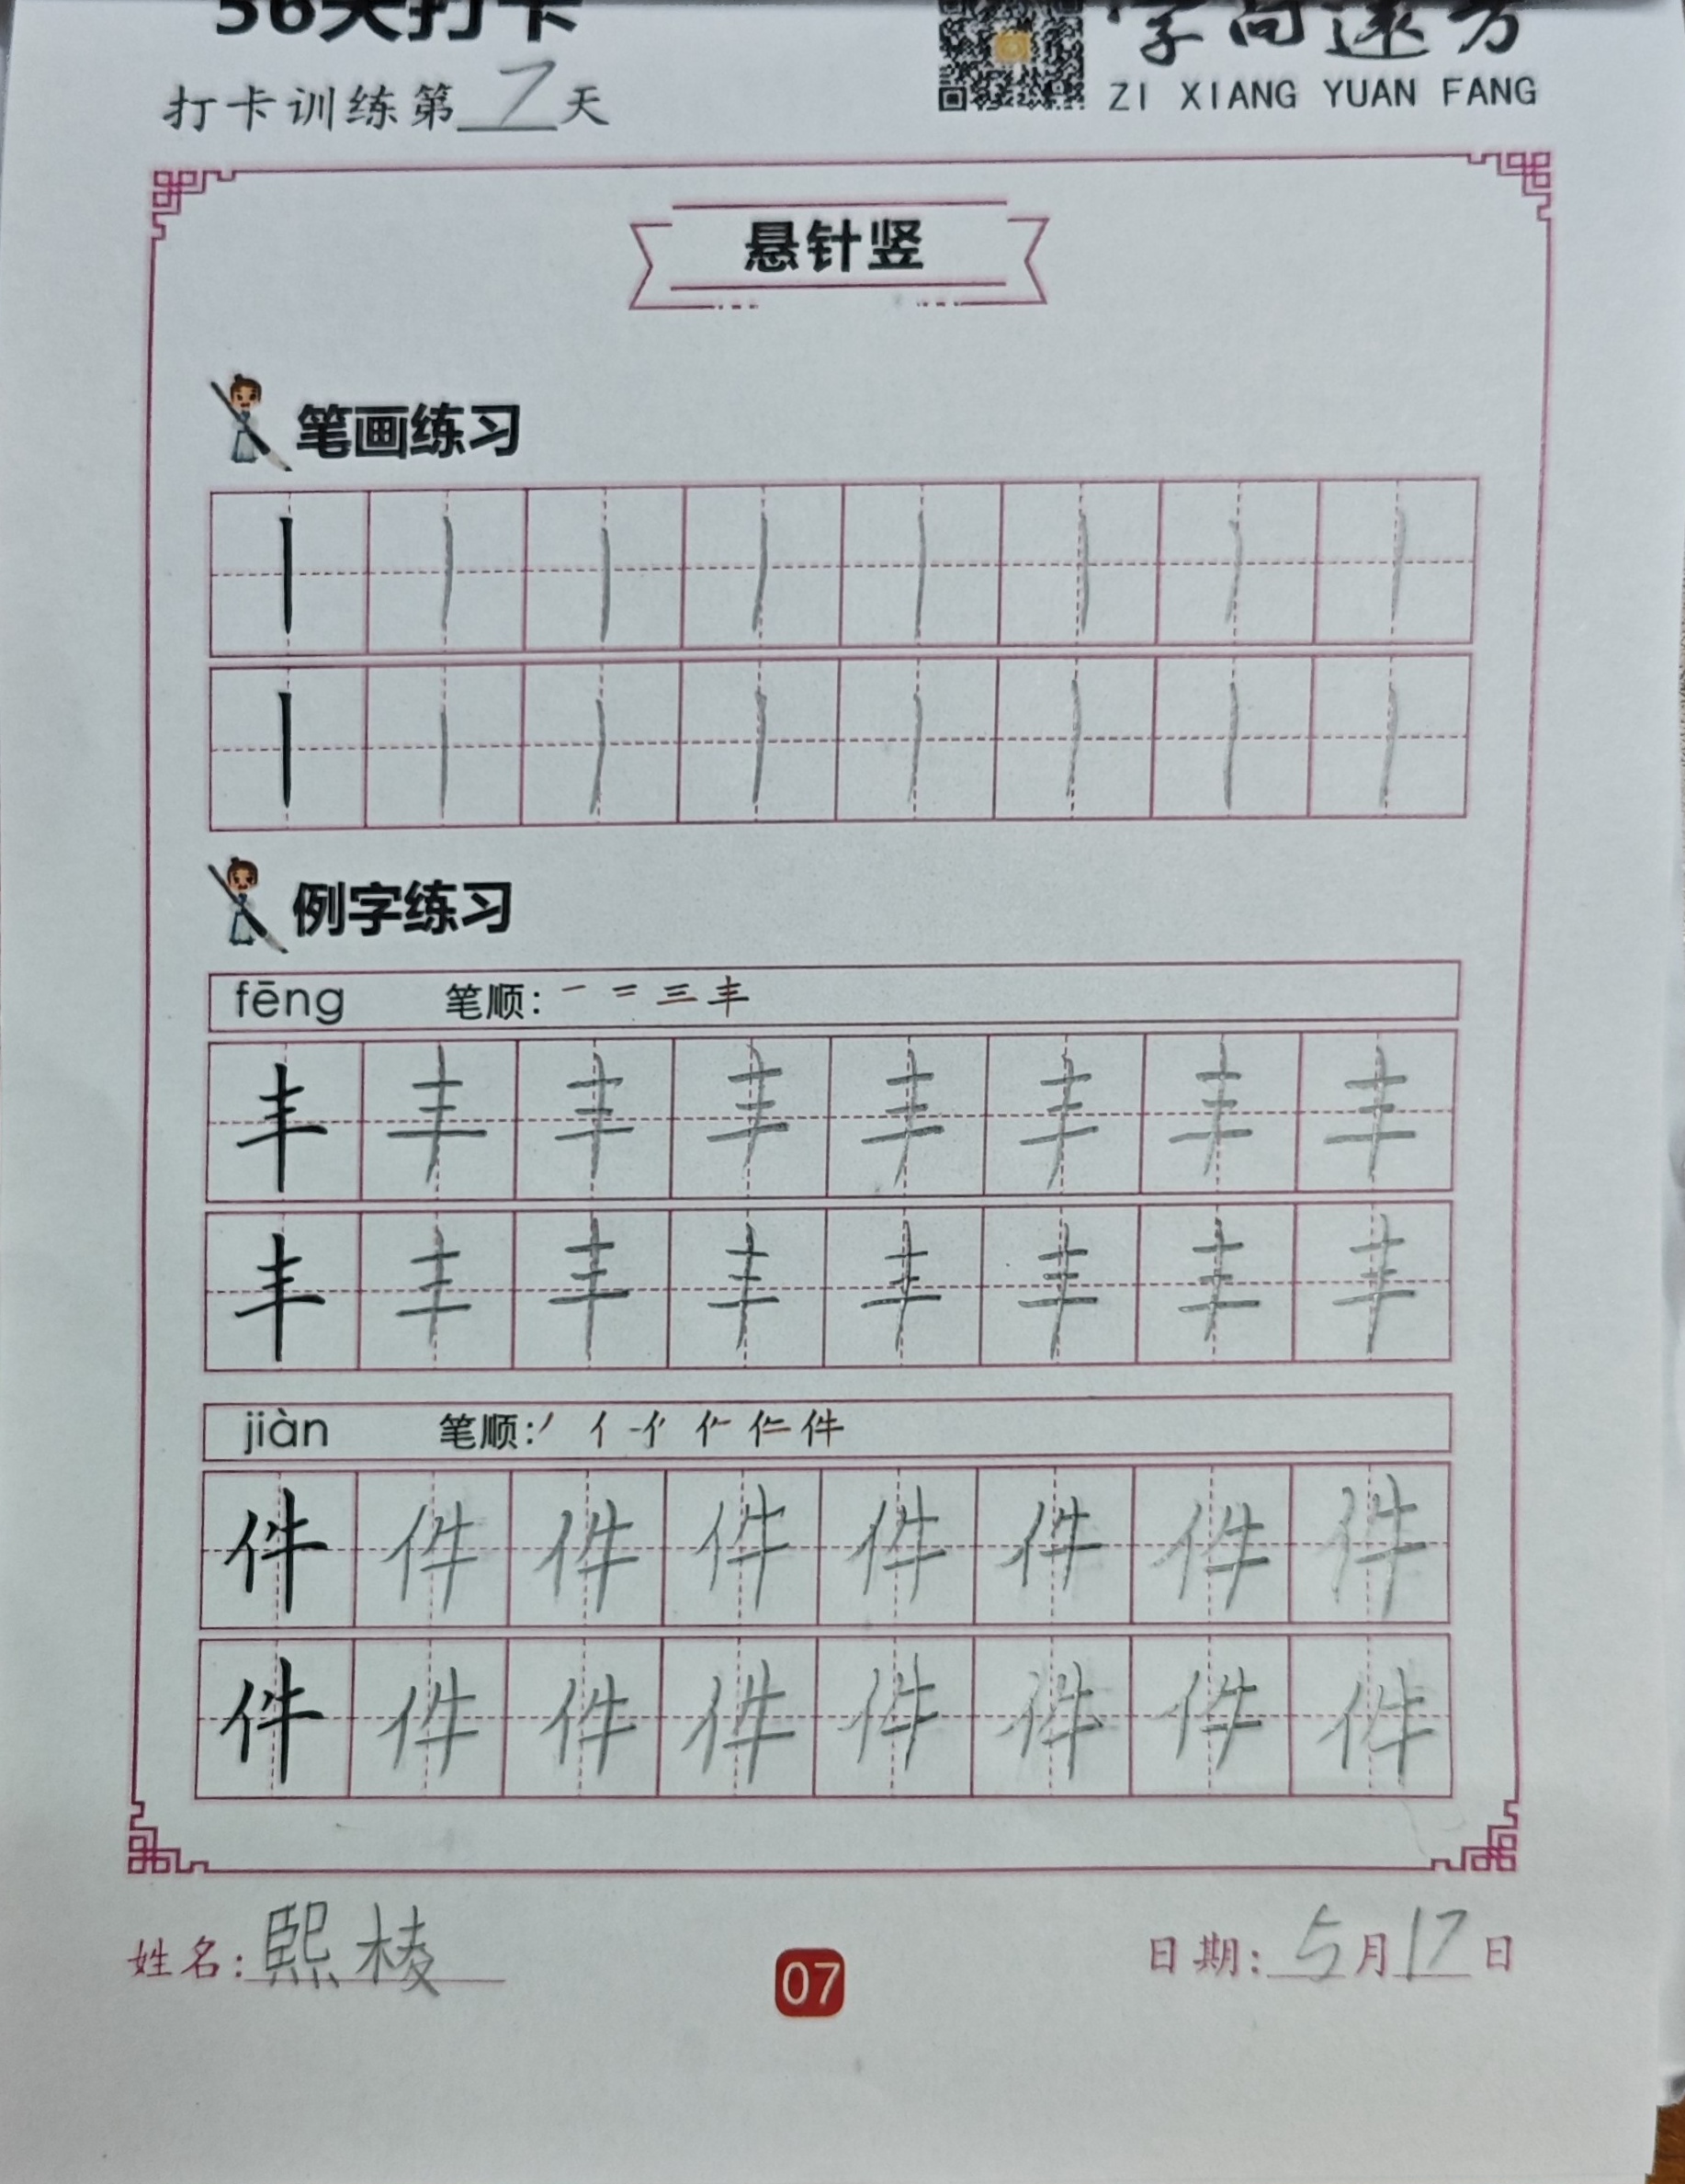 56天打卡
字向远方
打卡训练第7天
ZI XIANG YUAN FANG
悬针竖
笔画练习
丨 丨 丨 丨 丨 丨 丨 丨
丨 丨 丨 丨 丨 丨 丨 丨
例字练习
fēng 笔顺: 一 二 三 丰
丰 丰 丰 丰 丰 丰 丰 丰
丰 丰 丰 丰 丰 丰 丰 丰
jiàn 笔顺: 丿 亻 亻 仁 仁 件
件 件 件 件 件 件 件 件
件 件 件 件 件 件 件 件
姓名: 熙棱
07
日期: 5月17日